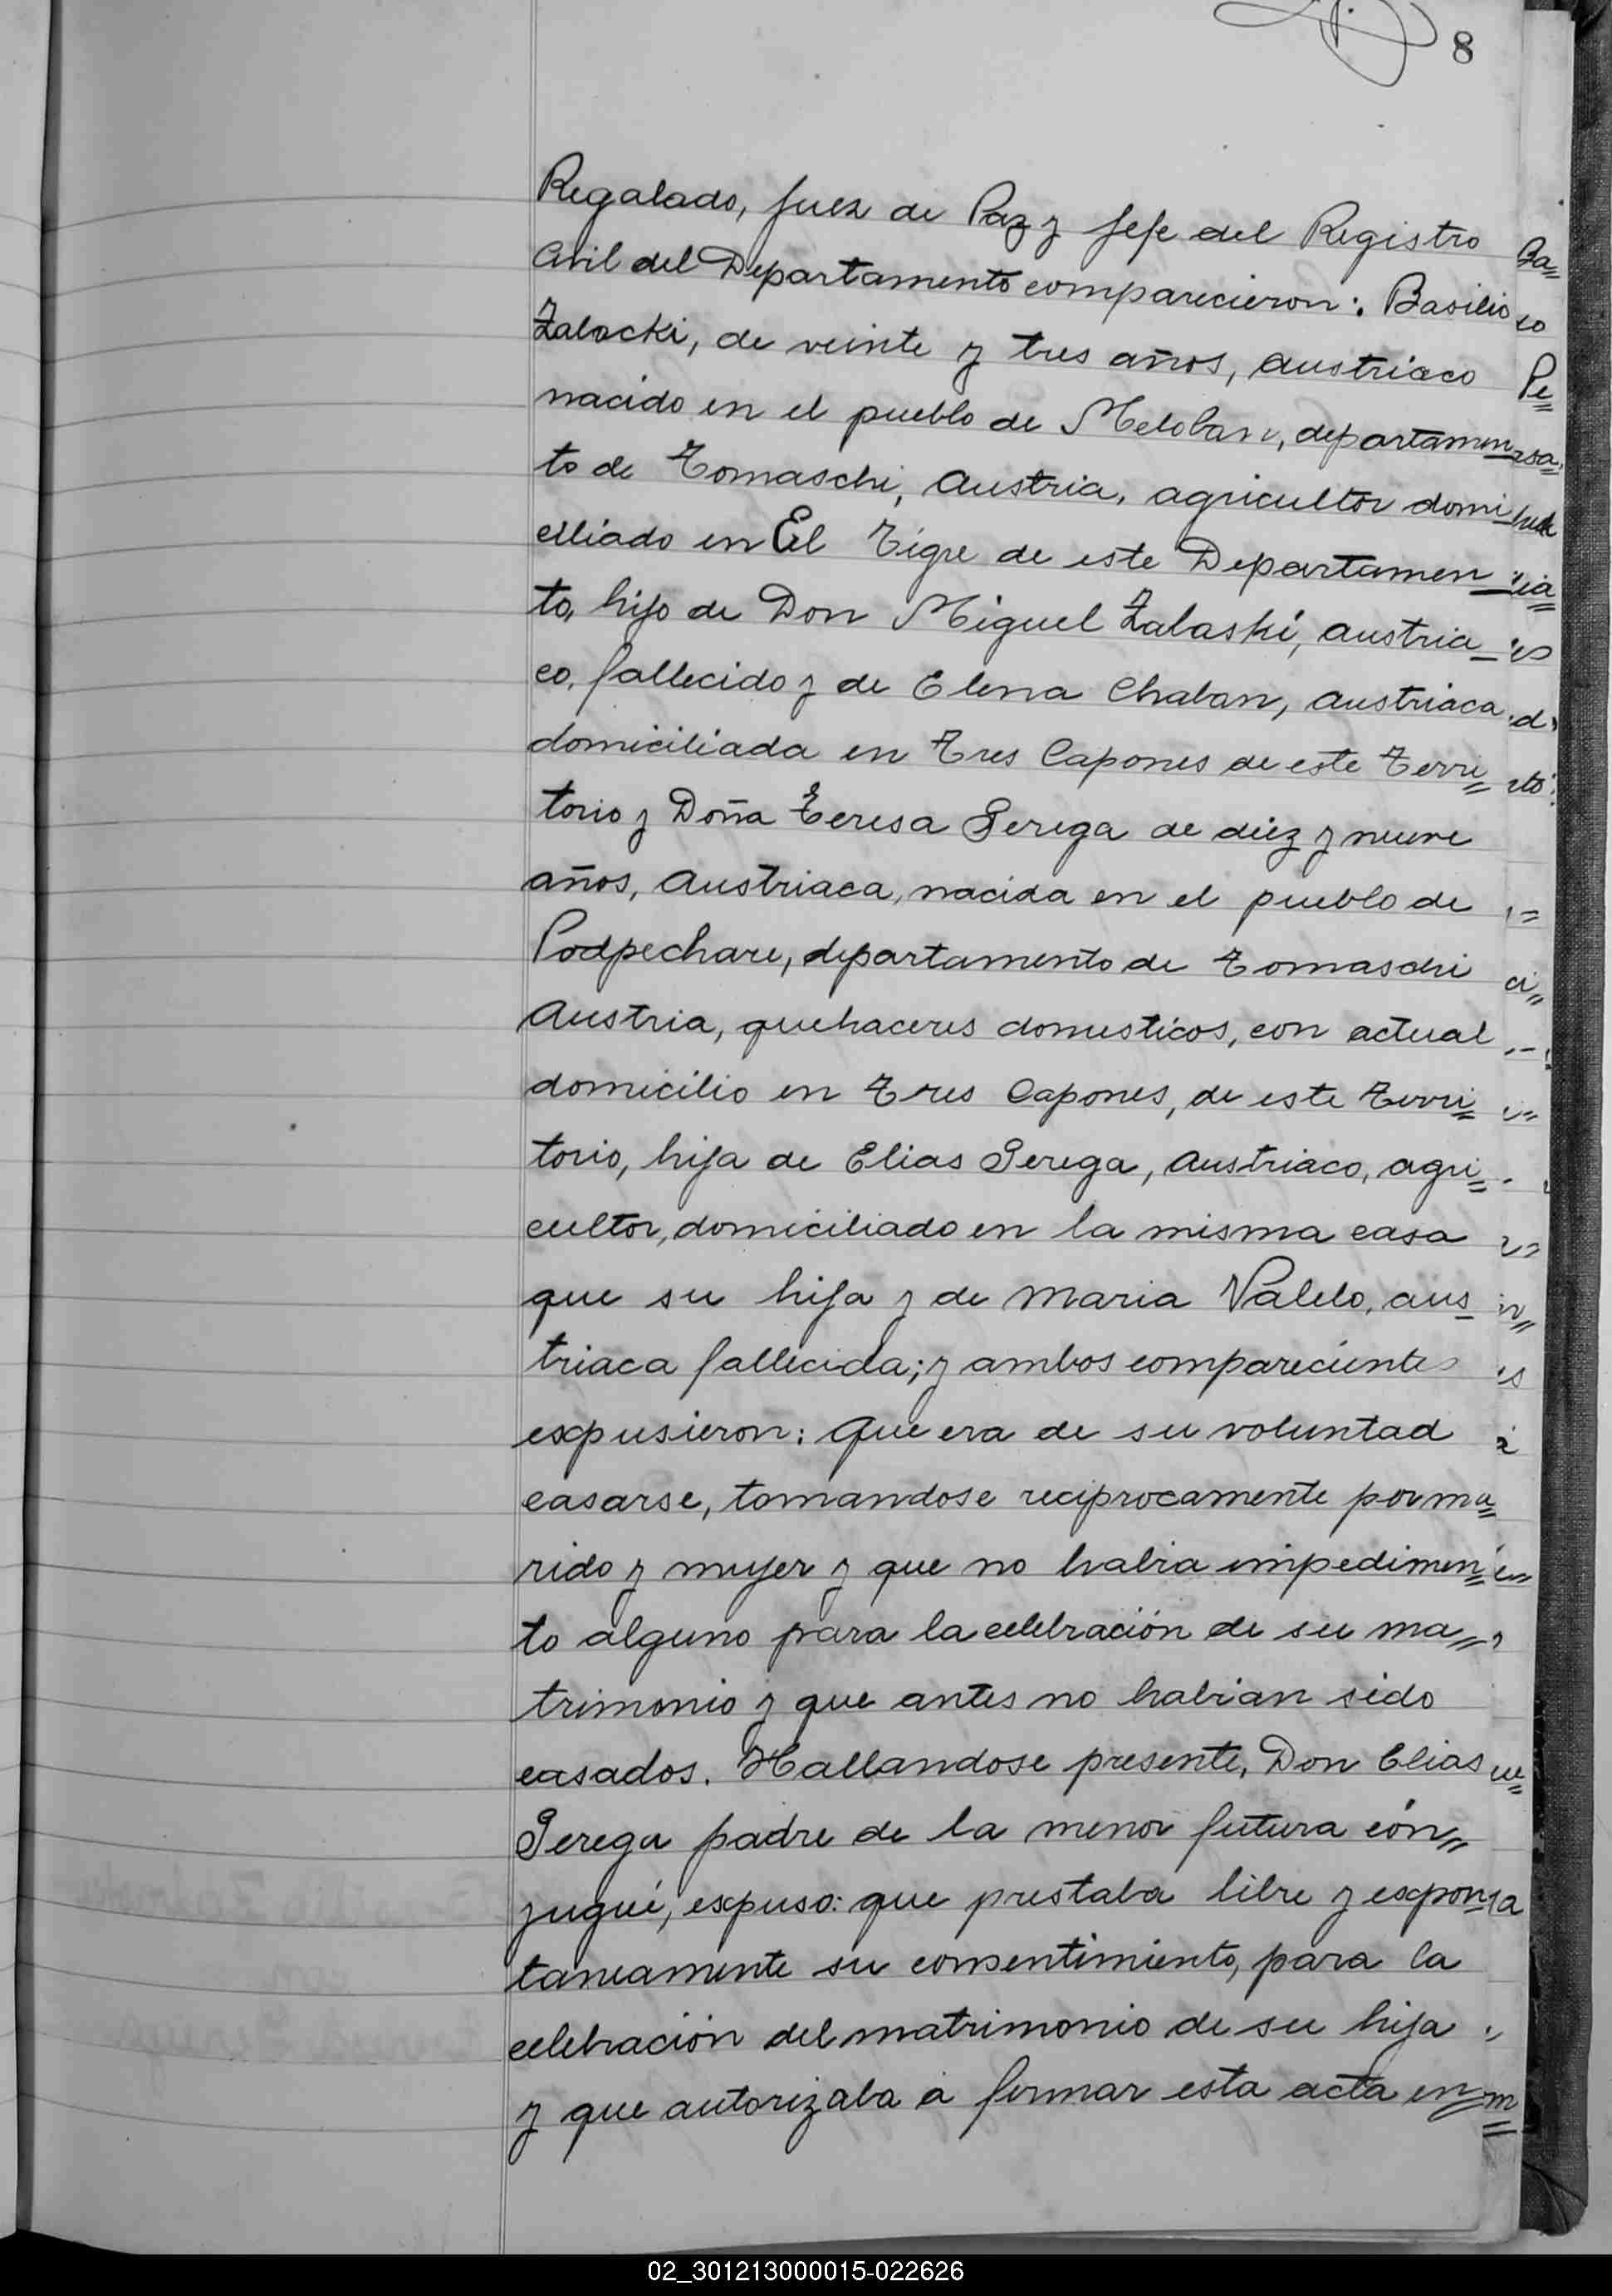 8
Regalado, Juez de Paz y Jefe del Registro
Civil del Departamento comparecieron: Basilio
Zalocki, de veinte y tres años, austriaco
nacido en el pueblo de departamen
to de Tomaschi, Austria, agricultor domi
ciliado en El Tigre de este Departamen
to, hijo de Don Miguel Zalaski, austria
co, fallecido y de Elena Chaban, austriaca
domiciliada en Tres Capones de este Terri
torio y Doña Teresa Serega de diez y nueve
años, Austriaca, nacida en el pueblo de
Podpechare, departamento de Tomaschi
Austria, quehaceres domesticos, con actual
domicilio en Tres Capones, de este Terri
torio, hija de Elias Serega, Austriaco, agri
cultor, domiciliado en la misma casa
que su hija y de Maria Valelo, aus
triaca fallecida; y ambos comparecientes
expusieron: Que era de su voluntad
casarse, tomandose reciprocamente por ma
rido y mujer y que no habia impedimen
to alguno para la celebración de su ma
trimonio y que antes no habian sido
casados. Hallandose presente, Don Elias
Serega padre de la menor futura cón
yugue, expuso: que prestaba libre y espon
taneamente su consentimiento, para la
celebración del matrimonio de su hija
y que autorizaba á firmar esta acta en
02_301213000015-022626